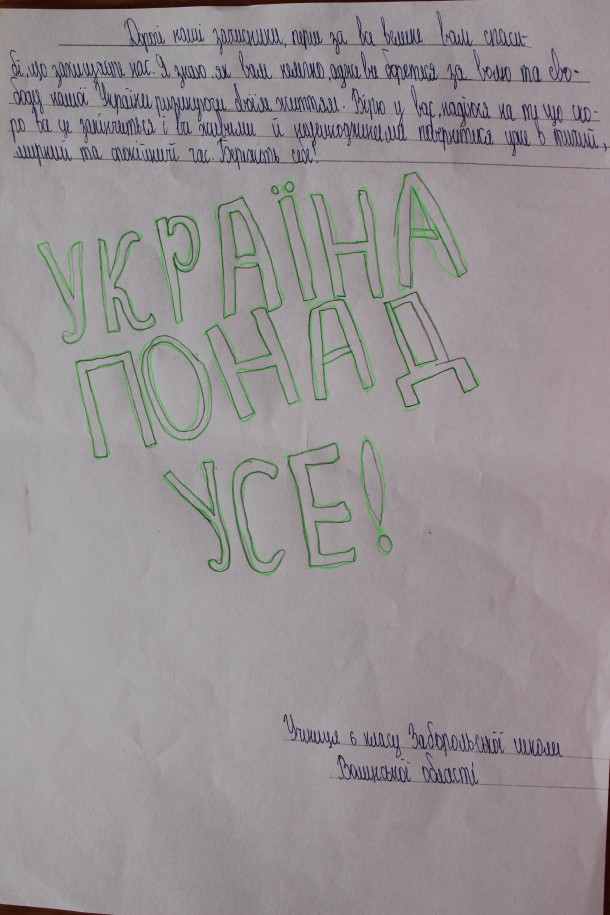 Дорогі наші захисники, перш за все велике вам спаси-
бі, що захищаєте нас. Я знаю як вам нелегко, адже ви боретеся за волю та сво-
боду нашої України ризикуючи своїм життям. Вірю у вас, надіюся на те що ско-
ро все це закінчиться і ви живими й неушкодженими повернетеся уже в тихий,
мирний та спокійний час. Бережіть себе!
УКРАЇНА
ПОНАД
УСЕ!
Учениця 6 класу Заборольської школи
Волинської області